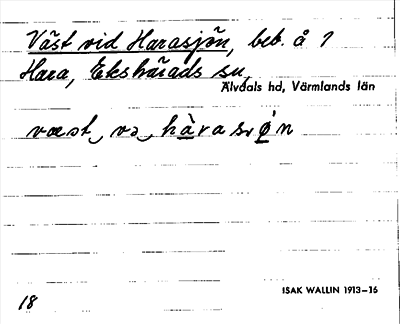 Väst vid Harasjön, beb. å 1
Hara, Ekshärads sn
Älvdals hd, Värmlands län
18
ISAK WALLIN 1913–16